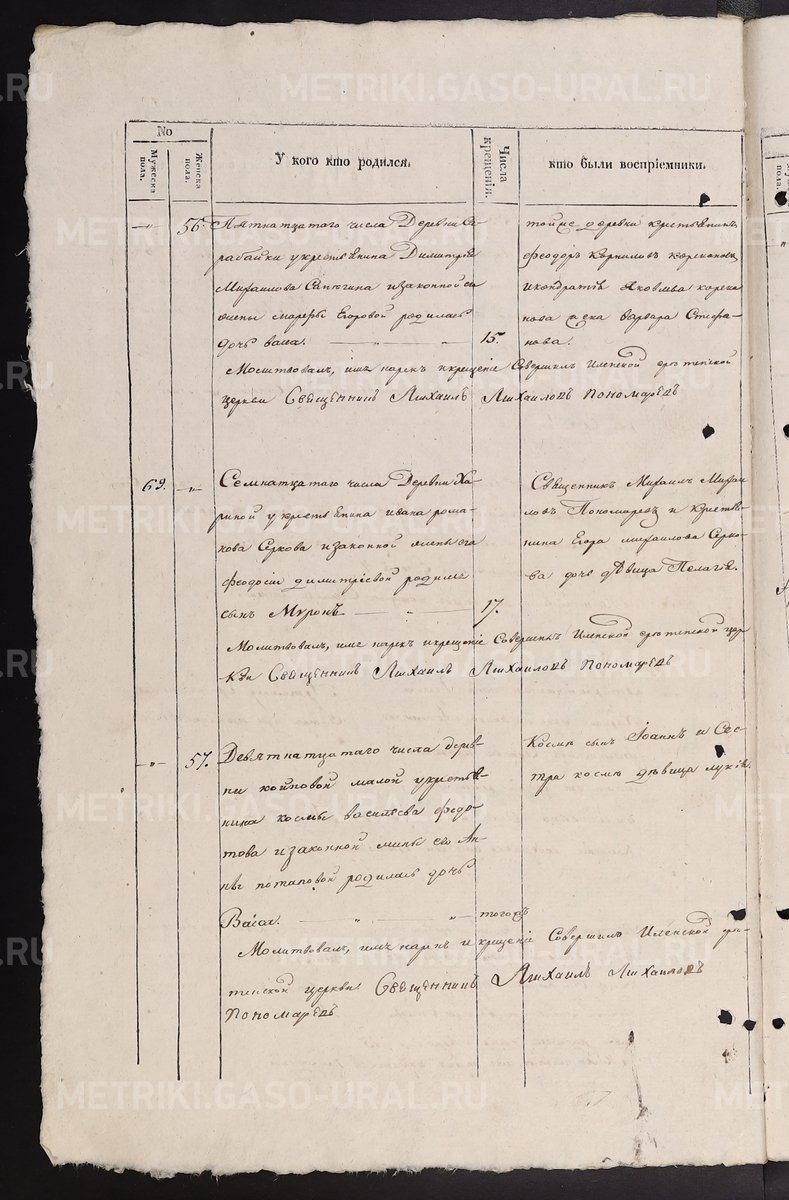 No
Мужеска пола.
Женска пола.
У кого кто родился.
Числа крещенія.
кто были воспріемники.
56. Пятнатцатого числа Деревни Ка-
рабайки у крестьянина Димитрія
Михаилова Сапегина и законной его
жены марфы Егоровой родилась
дочь васса. 15.
тойже деревни крестьянинъ
феодоръ Карниловъ
и кондратія Яковлева
жена Варвара Стефа-
нова.
Молитвовалъ, имя нарекъ и крещеніе Совершилъ Иленской срѣтенской
церкви Священникъ Михаилъ Михаиловъ Пономаревъ
69. Семнатцатого числа Деревни Ха-
риной у крестьянина ивана рома-
нова Серкова и законной жены его
феодосіи димитріевой родился
сынъ Миронъ 17.
Священникъ Михаилъ Михаи-
ловъ Пономаревъ и Крестья-
нина Егора михаилова Серко-
ва дочь дѣвица Пелагія.
Молитвовалъ, имя нарекъ и крещеніе Совершилъ Иленской срѣтенской цер-
кви Священникъ Михаилъ Михаиловъ Пономаревъ
57. Девятнатцатого числа дерев-
ни койновой малой у крестья-
нина космы васильева федо-
това и законной жены его Ан-
ны потаповой родилась дочь
Васса. тогожъ
Космы сынъ Іоаннъ и Сес-
тра космы дѣвица лукія.
Молитвовалъ, имя нарекъ и крещеніе Совершилъ Иленской срѣ-
тенской церкви Священникъ Михаилъ Михаиловъ
Пономаревъ
METRIKI.GASO-URAL.RU